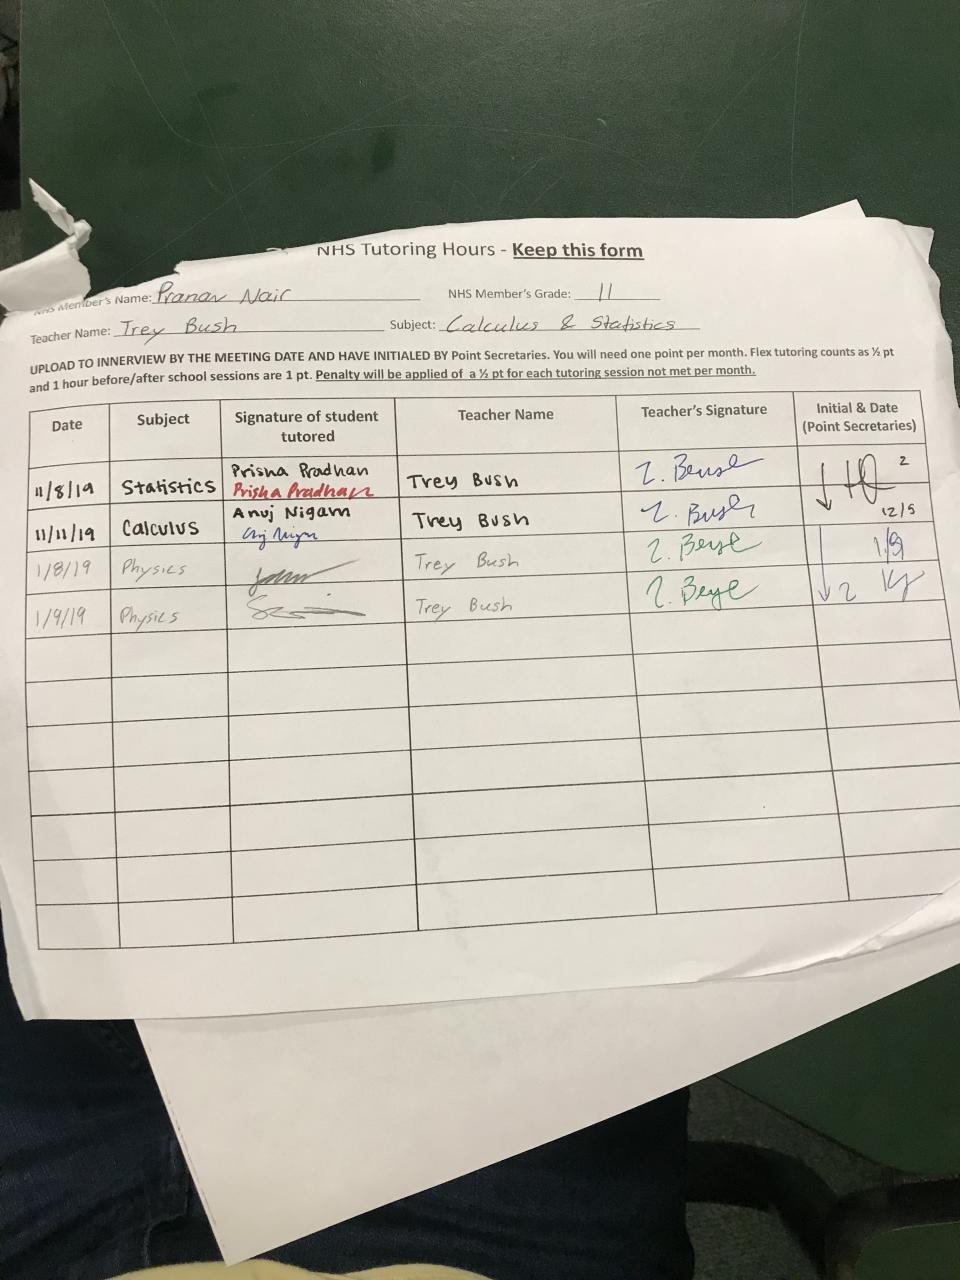 NHS Tutoring Hours - Keep this form
NHS Member's Name: Pranav Nair NHS Member's Grade: 11
Teacher Name: Trey Bush Subject: Calculus & Statistics
UPLOAD TO INNERVIEW BY THE MEETING DATE AND HAVE INITIALED BY Point Secretaries. You will need one point per month. Flex tutoring counts as ½ pt
and 1 hour before/after school sessions are 1 pt. Penalty will be applied of a ½ pt for each tutoring session not met per month.
Date Subject Signature of student tutored Teacher Name Teacher's Signature Initial & Date (Point Secretaries)
11/8/19 Statistics Prisha Pradhan Prisha Pradhan Trey Bush 2
11/11/19 Calculus Anuj Nigam Trey Bush 12/5
1/8/19 Physics Trey Bush 1/9
1/9/19 Physics Trey Bush 2